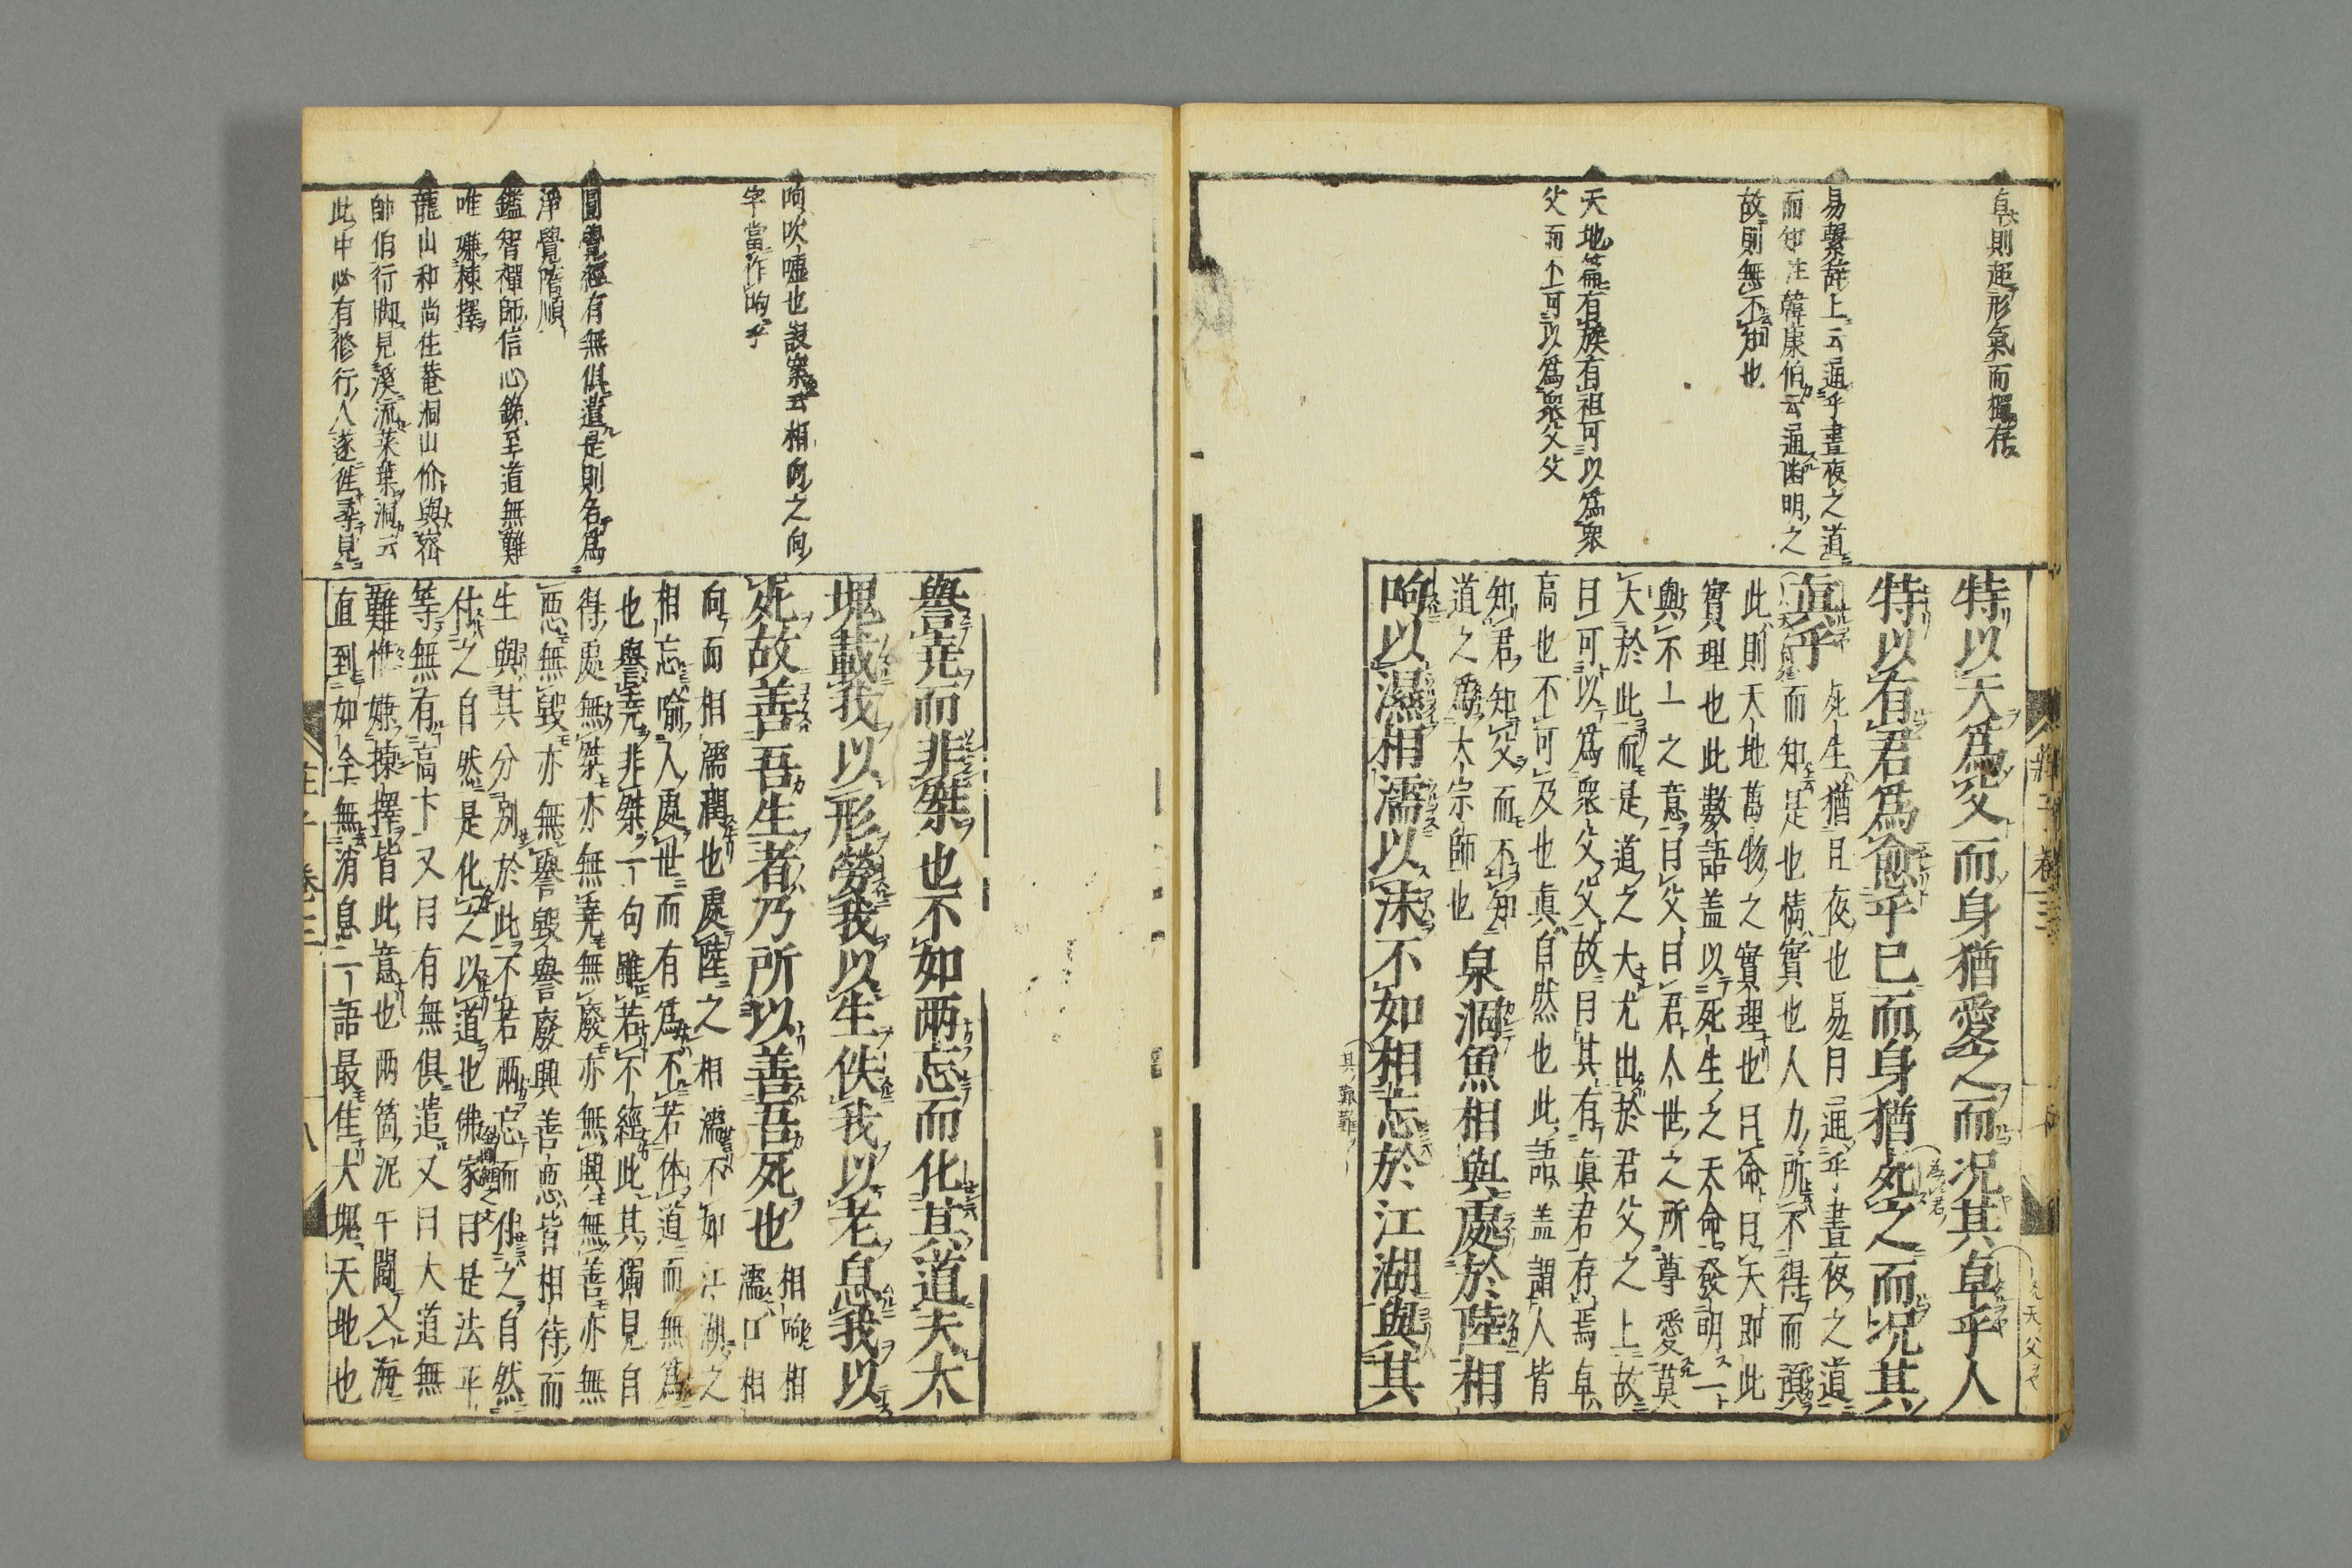 特以天爲父而身猶愛之而况其卓乎人
特以有君爲愈乎已而身猶死之而况其
眞乎
死生猶旦夜也易曰通乎晝夜之道
而知是也情實也人力所不得而預
此則天地萬物之實理也曰命曰天即此
實理也此數語盖以死生之天命發明一
與不一之意曰父曰君人世之所尊愛莫
大於此而是道之大尤出於君父之上故
曰可以爲衆父父故曰其有眞君存焉卓
高也不可及也眞自然也此語盖謂人皆
知君知父而不知
道之爲大宗師也
泉涸魚相與處於陸相
呴以濕相濡以沫不如相忘於江湖與其
卓則超形氣而獨存
易繫辭上云通乎晝夜之道
而知注韓康伯云通幽明之
故則無不知也
天地篇有族有祖可以爲衆
父而不可以爲衆父父
譽堯而非桀也不如兩忘而化其道夫大
塊載我以形勞我以生佚我以老息我以
死故善吾生者乃所以善吾死也
相呴相
濡口相
向而相濡潤也處陸之相濡不如江湖之
相忘喻人處世而有爲不若体道而無爲
也譽堯非桀一句雖若不經此其獨見自
得處無桀亦無堯無廢亦無興無善亦無
悪無毀亦無譽毀譽廢興善悪皆相待而
生與其分別於此不若兩忘而付之自然
付之自然是化之以道也佛家曰是法平
等無有高下又曰有無俱遣又曰大道無
難惟嫌揀擇皆此意也兩箇泥牛鬪入海
直到如今無消息一語最佳大塊天地也
呴吹嘘也設案云相向之向
字當作呴乎
圓覺經有無俱遣是則名爲
淨覺隨順
鑑智禪師信心銘至道無難
唯嫌揀擇
龍山和尚住菴洞山价與密
師伯行脚見溪流菜葉洞云
此中必有修行人遂徃尋見